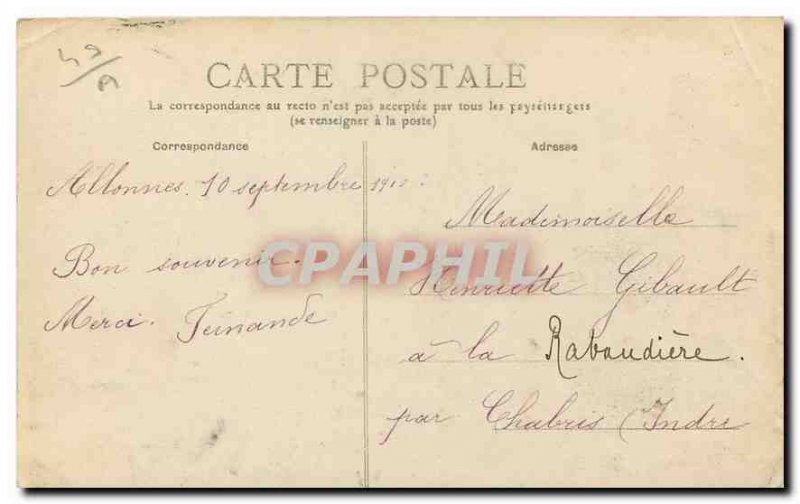 49/9
CARTE POSTALE
La correspondance au recto n'est pas acceptée par tous les pays étrangers
(se renseigner à la poste)
Correspondance
Adresse
Allonnes. 10 septembre
Bon souvenir.
Merci. Fernande
CPAPHIL
Mademoiselle
Henriette Gibault
à la Rabaudière.
par Chabris (Indre